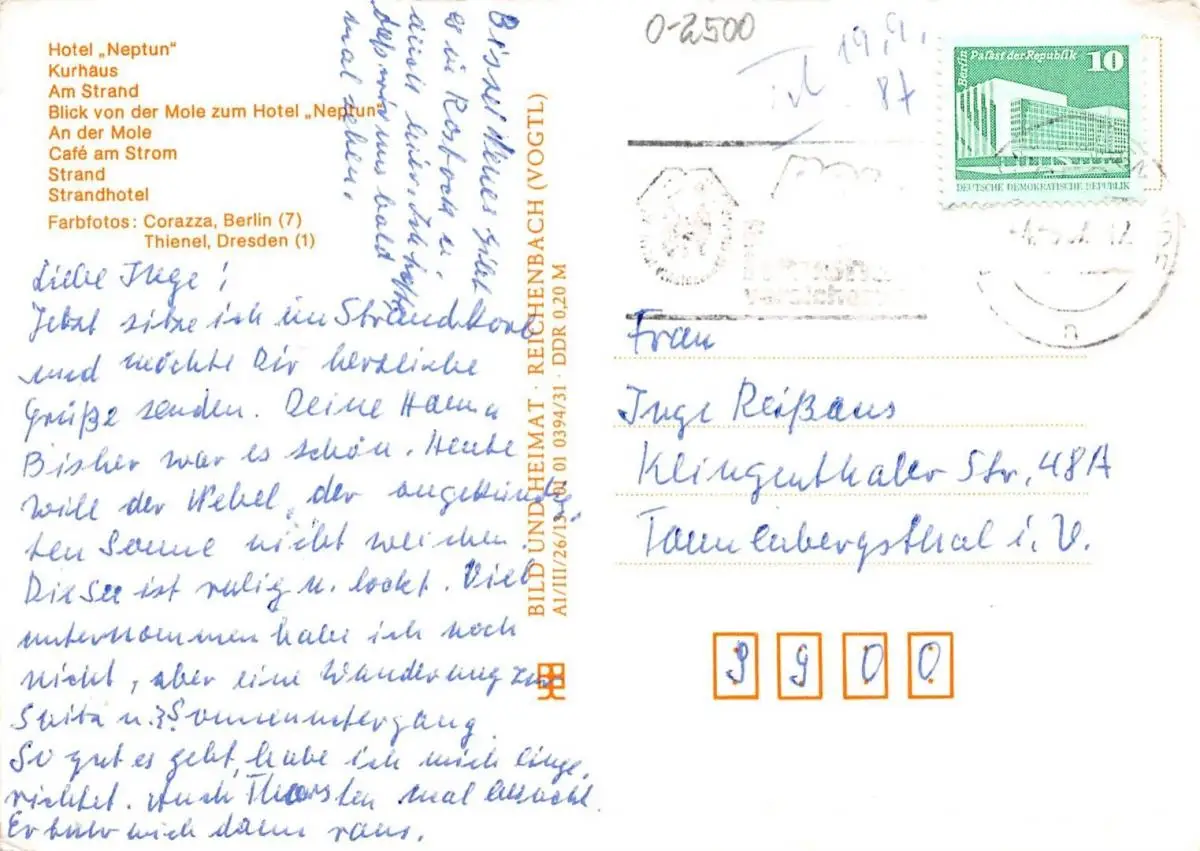 Hotel „Neptun“
Kurhaus
Am Strand
Blick von der Mole zum Hotel „Neptun“
An der Mole
Café am Strom
Strand
Strandhotel
Farbfotos: Corazza, Berlin (7)
Thienel, Dresden (1)
Liebe Inge!
Jetzt sitze ich im Strandkorb
und möchte Dir herzliche
Grüße senden. Deine Hanna
Bisher war es schön. Heute
will der Nebel, der angekündig
ten Sonne nicht weichen.
Die See ist ruhig u. lockt. Viel
unternommen habe ich noch
nicht, aber eine Wanderung zur
u. Sonnenuntergang
So gut es geht, habe ich mich einge-
richtet. Auch Thorsten mal besucht.
Er fuhr mich dann raus.
Bissel Neues gibt
es in Rostock u.
auch hier. Ich hoffe,
daß wir uns bald
mal sehen.
BILD UND HEIMAT · REICHENBACH (VOGTL)
A1/III/26/13 01 01 0394/31 · DDR 0,20 M
0-2500
19.9.
87
Berlin Palast der Republik
10
DEUTSCHE DEMOKRATISCHE REPUBLIK
n
Frau
Inge Reißaus
Klingenthaler Str. 48A
Tannenbergsthal i. V.
9900